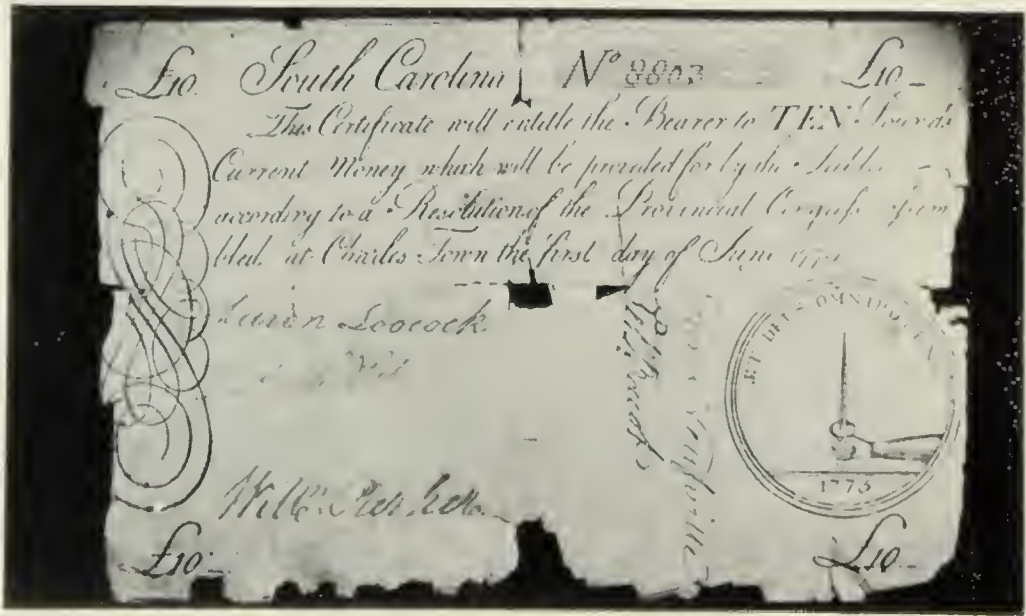 £10 South Carolina No 8803 £10
This Certificate will entitle the Bearer to TEN Pounds
Current Money which will be provided for by the Public
according to a Resolution of the Provincial Congress Assem
bled at Charles Town the first day of June 1775
Aaron Loocock
ET DEUS OMNIPOTENS
1775
£10 £10